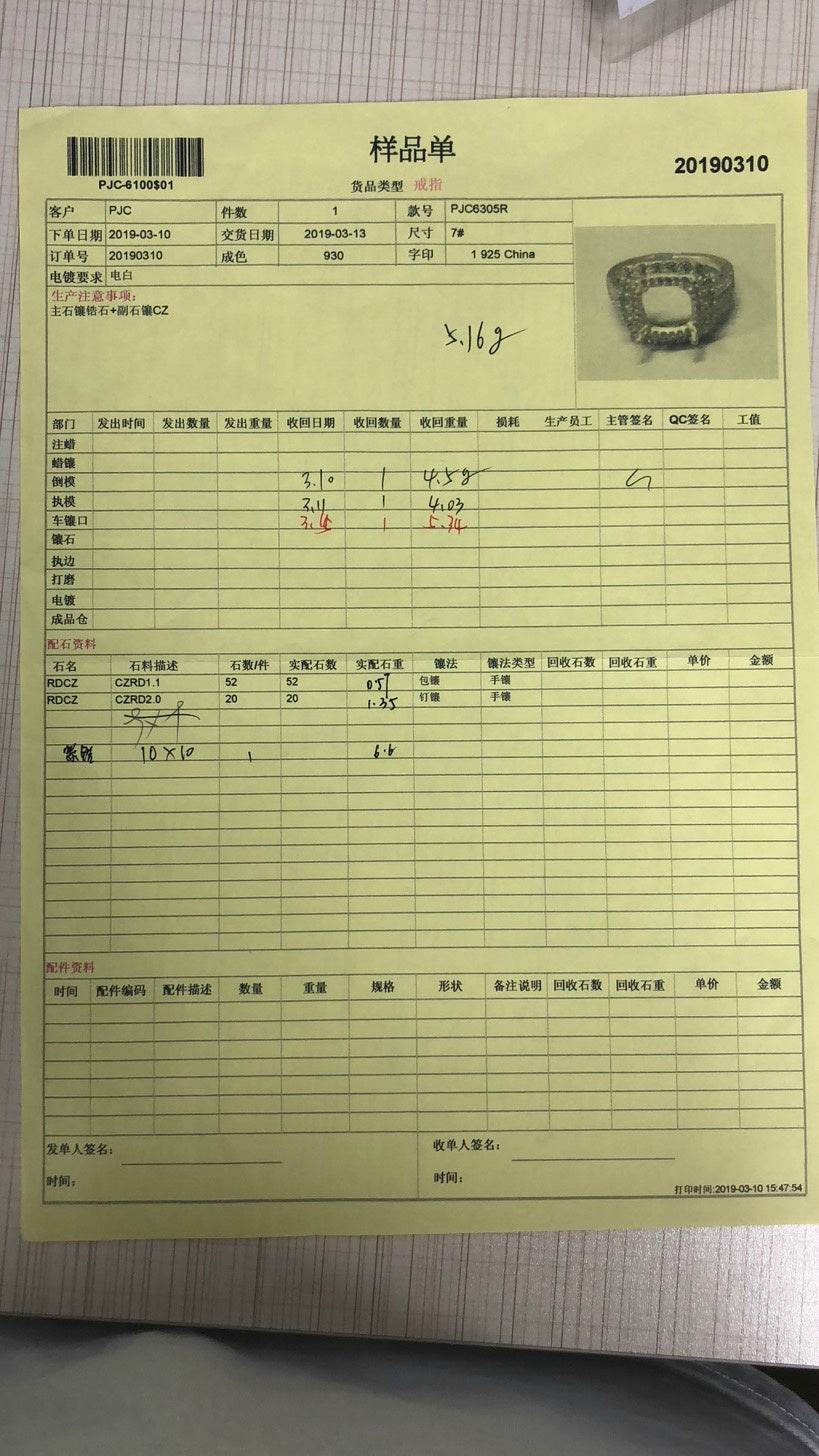 样品单
20190310
PJC-6100$01
货品类型 戒指
客户 PJC 件数 1 款号 PJC6305R
下单日期 2019-03-10 交货日期 2019-03-13 尺寸 7#
订单号 20190310 成色 930 字印 1 925 China
电镀要求 电白
生产注意事项:
主石镶锆石+副石镶CZ
5.16g
部门 发出时间 发出数量 发出重量 收回日期 收回数量 收回重量 损耗 生产员工 主管签名 QC签名 工值
注蜡
蜡镶
倒模 3.10 1 4.5g
执模 3.11 1 4.03
车镶口 1 5.34
镶石
执边
打磨
电镀
成品仓
配石资料
石名 石料描述 石数/件 实配石数 实配石重 镶法 镶法类型 回收石数 回收石重 单价 金额
RDCZ CZRD1.1 52 52 包镶 手镶
RDCZ CZRD2.0 20 20 1.35 钉镶 手镶
10×10 1 6.6
配件资料
时间 配件编码 配件描述 数量 重量 规格 形状 备注说明 回收石数 回收石重 单价 金额
发单人签名: 收单人签名:
时间: 时间:
打印时间:2019-03-10 15:47:54